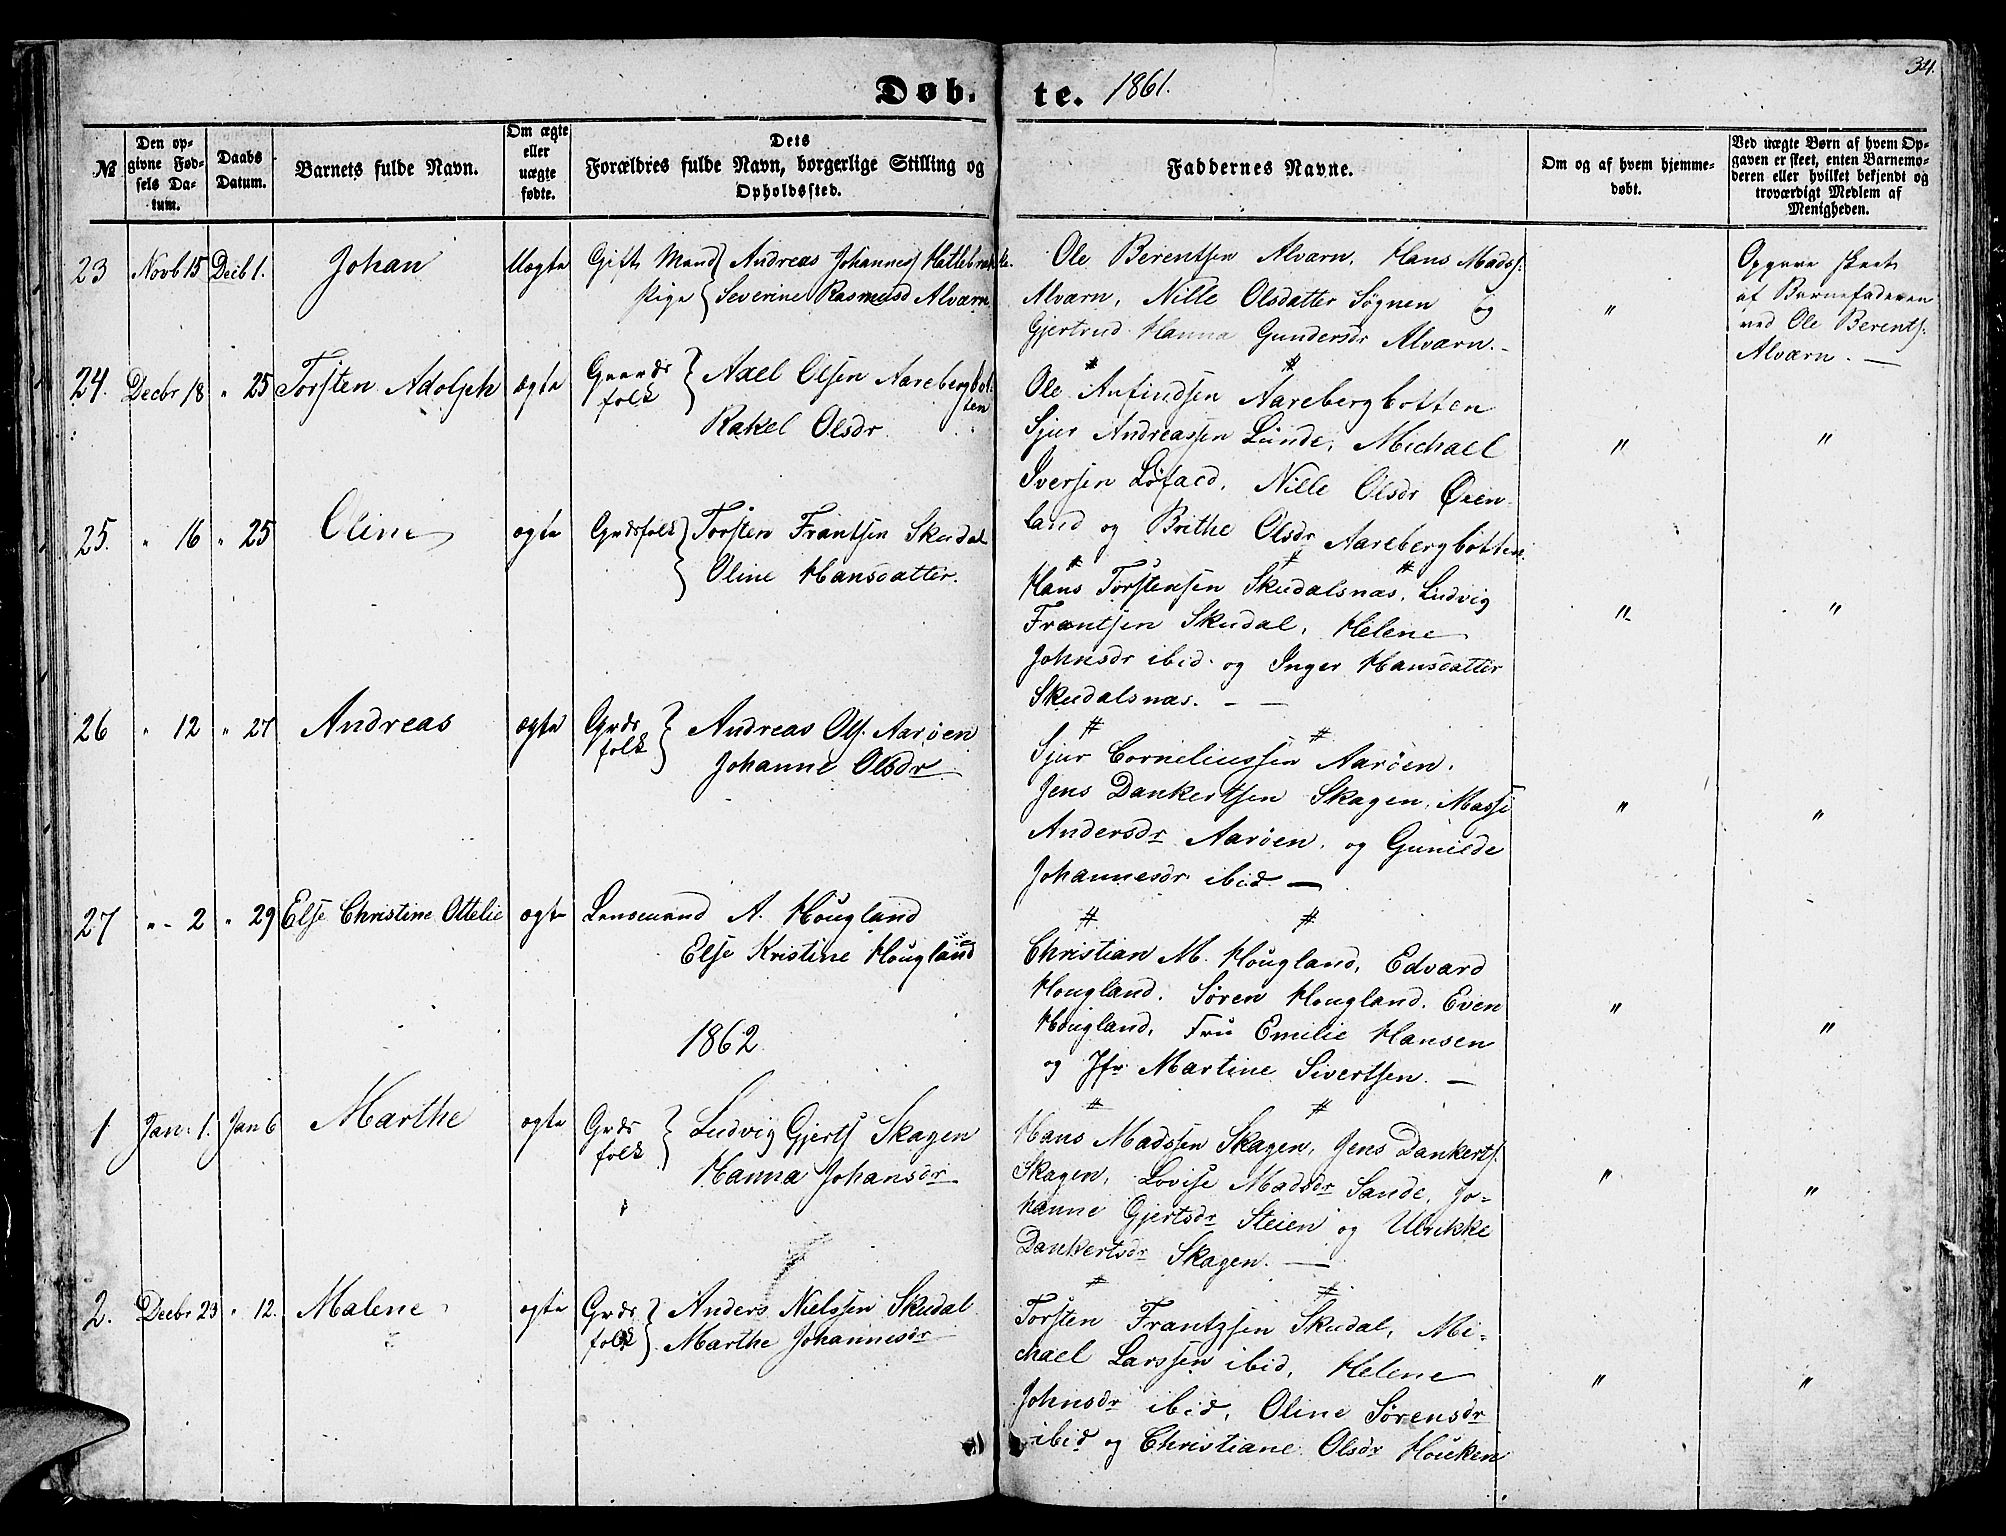 Døb. te. 1861. 34.
№ | Den opgivne Fødsels Datum. | Daabs Datum. | Barnets fulde Navn. | Om ægte eller uægte fødte. | Dets Forældres fulde Navn, borgerlige Stilling og Opholdssted. | Faddernes Navne. | Om og af hvem hjemmedøbt. | Ved uægte Børn af hvem Opgaven er skeet, enten Barnemoderen eller hvilket bekjendt og troværdigt Medlem af Menigheden.
23 Novb 15 Decb 1. Johan Uægte Gift Mand Andreas Johannes
Pige Severine Rasmusd Alværn
Ole Berentsen Alværn, Hans Madss:
Alværn, Nille Olsdatter Søgnen og
Gjertrud Hanna Gundersdr Alværn. -
"
Opgave skeet
af Barnefaderen
ved Ole Berents:
Alværn. —
24. Decbr 18 " 25 Torsten Adolph ægte Gaards
folk
Axel Olsen Aarebergbot-
ten
Rakel Olsdr
Ole Anfindsen Aarebergbotten
Sjur Andreassen Lunde, Michael
Iversen Løfald, Nille Olsdr Øren-
land og Brithe Olsdr Aarebergbotten
" "
25. " 16 " 25 Oline ægte Grdsfolk Torsten Frantsen Skudal
Oline Hansdatter.
Hans Torstensen Skudalsnæs, Ludvig
Frantsen Skudal, Helene
Johnsdr ibid. og Inger Hansdatter
Skudalsnæs. — —
" "
26 " 12 " 27 Andreas ægte Grds
folk
Andreas Ols. Aarøen
Johanne Olsdr
Sjur Corneliussen Aarøen.
Jens Dankertsen Skagen, Massi
Andersdr Aarøen, og Gunilde
Johannesdr ibid —
" "
27 " - 2 " 29 Else Christine Ottelie ægte Lensmand A. Hougland
Else Kristine Hougland
Christian M. Hougland, Edvard
Hougland. Søren Hougland. Even
Hougland, Fru Emilie Hansen
og Jfr Martine Sivertsen. —
" "
1862
1 Jan: 1. Jan 6 Marthe ægte Grds
folk
Ludvig Gjerts Skagen
Hanna Johansdr
Hans Madssen Skagen, Jens Dankerts.
Skagen, Lovise Madsdr Sande, Jo-
hanne Gjertsdr Steien og Ulrikke
Dankertsdr Skagen. —
" "
2. Decbr 23 " 12. Malene ægte Grds
folk
Anders Nielssen Skudal
Marthe Johannesdr
Torsten Frantzsen Skudal, Mi-
chael Larssen ibid, Helene
Johnsdr ibid, Oline Sørensdr
ibid og Christiane Olsdr Houken
" "